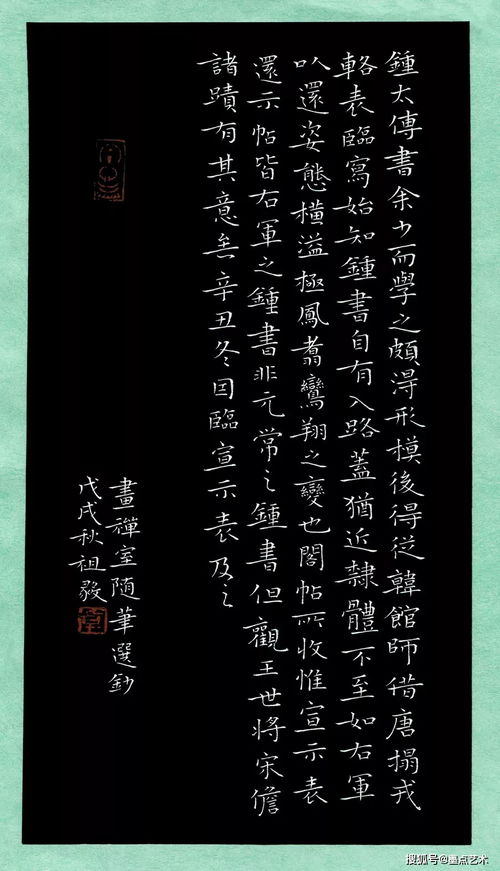 鍾太傅書余少而學之頗淂形模後得從韓館師借唐搨戎
輅表臨寫始知鍾書自有入路蓋猶近隸體不至如右軍
以還姿態橫溢極鳳翥鸞翔之變也閣帖所收惟宣示表
還示帖皆右軍之鍾書非元常之鍾書但觀王世將宋儋
諸蹟有其意矣辛丑冬因臨宣示表及之
畫禪室随筆選鈔
戊戌秋祖毅
搜狐号@墨点艺术